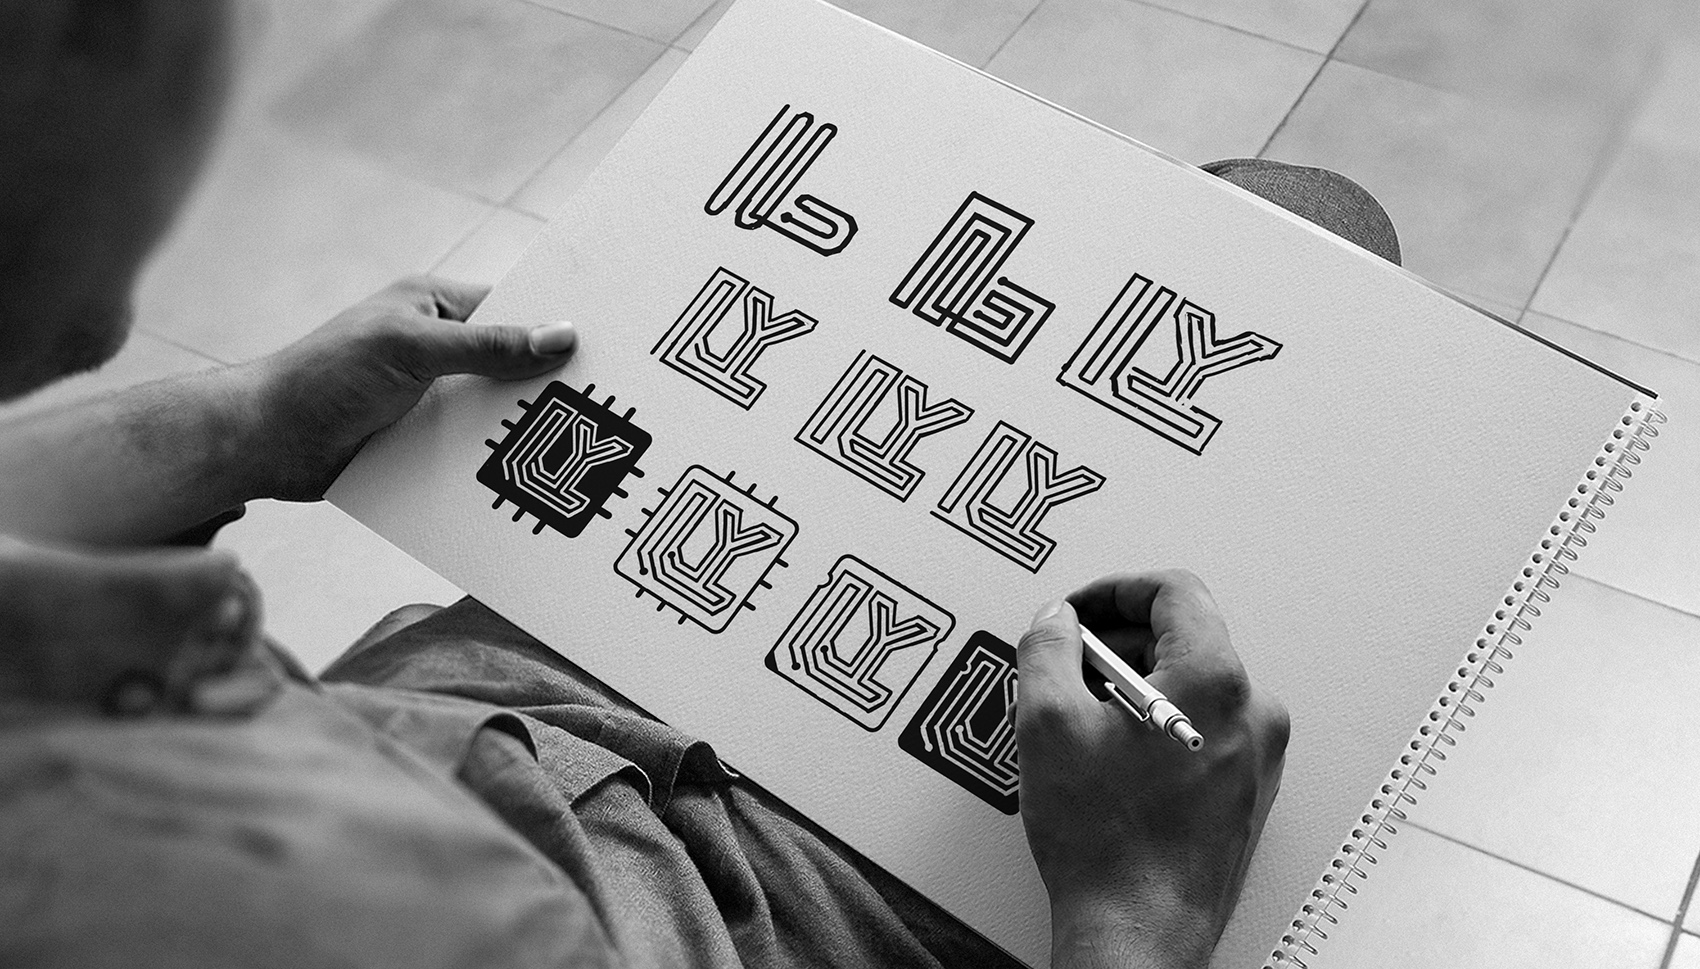 LY
LY LY LY
LY LY LY